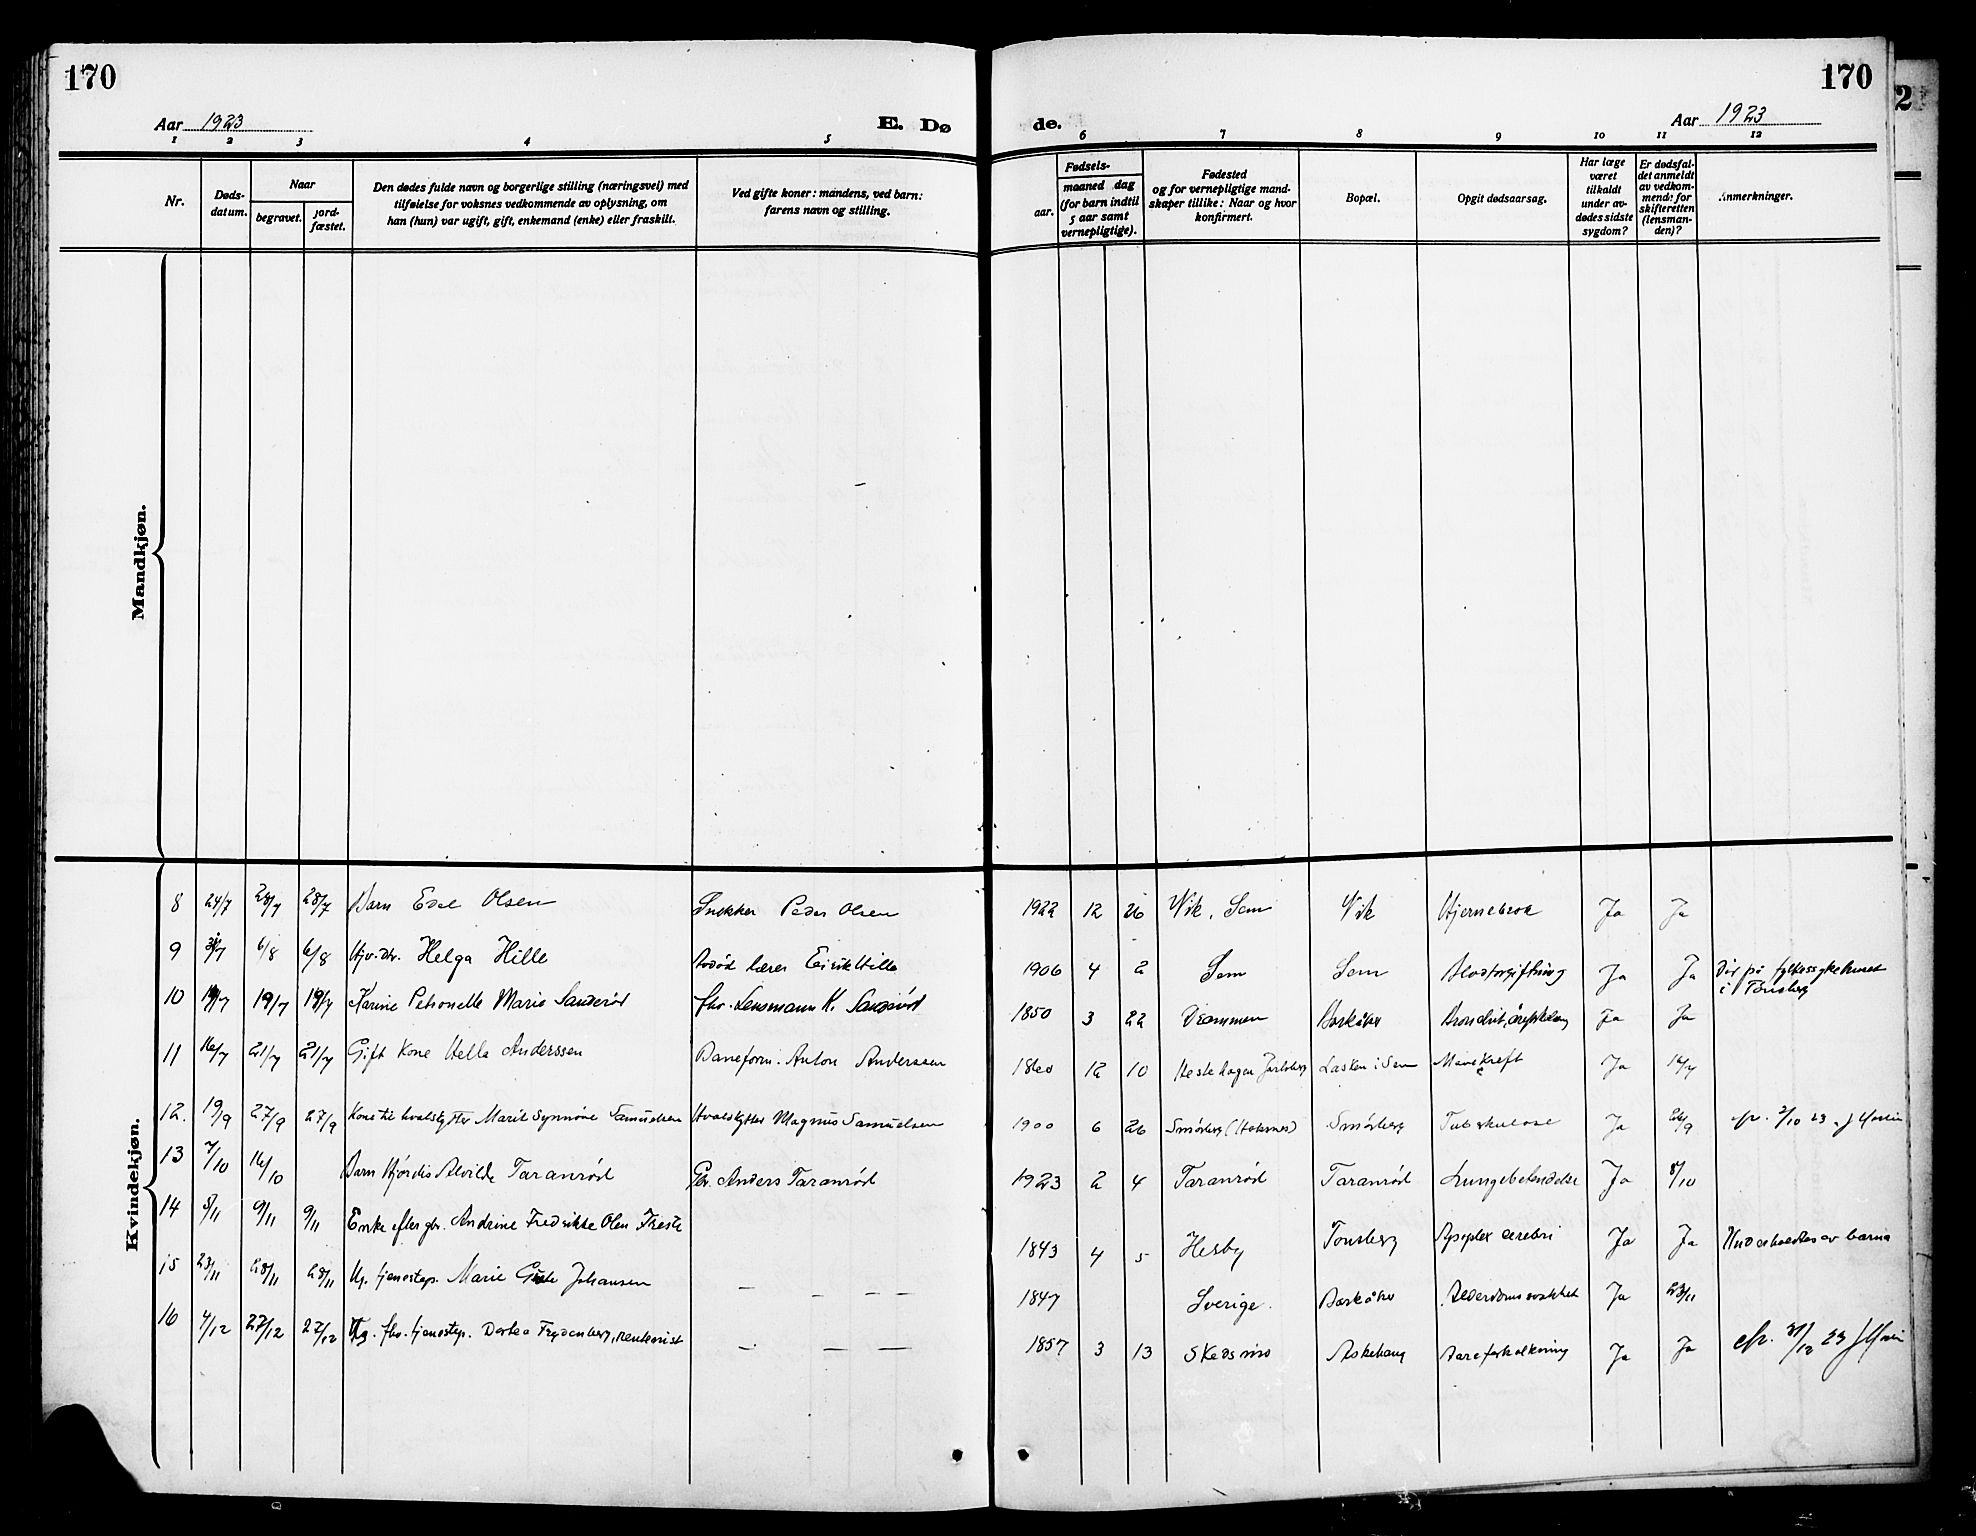 170
170
2
Aar 1923
E. Dø
de.
Aar 1923
1 2 3 4 5 6 7 8 9 10 11 12
Nr.
Døds-
datum.
Naar
begravet.
jord-
fæstet.
Den dødes fulde navn og borgerlige stilling (næringsvei) med
tilføielse for voksnes vedkommende av oplysning, om
han (hun) var ugift, gift, enkemand (enke) eller fraskilt.
Ved gifte koner: mandens, ved barn:
farens navn og stilling.
Fødsels-
aar.
maaned dag
(for barn indtil
5 aar samt
vernepligtige).
Fødested
og for vernepligtige mand-
skaper tillike: Naar og hvor
konfirmert.
Bopæl.
Opgit dødsaarsag.
Har læge
været
tilkaldt
under av-
dødes sidste
sygdom?
Er dødsfal-
det anmeldt
av vedkom-
mend: for
skifteretten
(lensman-
den)?
Anmerkninger.
Mandkjøn.
Kvindekjøn.
8 24/7 28/7 28/7 Barn Edel Olsen Snekker Peder Olsen 1922 12 26 Vik, Sem Vik Hjernebetok Ja Ja
9 31/7 6/8 6/8 Helga Hille lærer Eirik Hille 1906 4 2 Sem Sem Blodforgiftning Ja Ja Død på fylkessykehuset
i Tønsberg
10 19/7 19/7 Karine Petronelle Marie Sanderød fhv. Lensmann K. Sanderød 1850 3 22 Drammen Barkåker Ja Ja
11 16/7 21/7 21/7 Gift Kone Hella Anderssen Baneform. Anton Anderssen 1860 12 10 Hestehagen Jarlsberg Lasken i Sem Mavekreft Ja 14/7
12. 19/9 27/9 27/9 Kone til hvalskytter Marit Synnøve Samuelsen Hvalskytter Magnus Samuelsen 1900 6 26 Smørberg Smørberg Tuberkulose Ja 26/9 2/10 23
13 7/10 16/10 Barn Hjørdis Alvilde Taranrød Gbr. Anders Taranrød 1923 2 4 Taranrød Taranrød Lungebetendelse Ja 8/10
14 5/11 9/11 9/11 Enke efter gbr. Andrine Fredrikke Olsen 1843 4 5 Hesby Tønsberg Apoplex cerebri Ja Ja Underholdtes av barna
15 23/11 28/11 28/11 Ug. tjenestep. Marie Johansen — — — — 1847 Sverige. Barkåker Alderdomssvakhet Ja 23/11
16 4/12 27/12 27/12 Ug. fhv. tjenestep. Dortea Frydenberg, — — — 1857 3 13 Skedsmo Askehaug Aareforkalkning Ja Ja 31/12 23